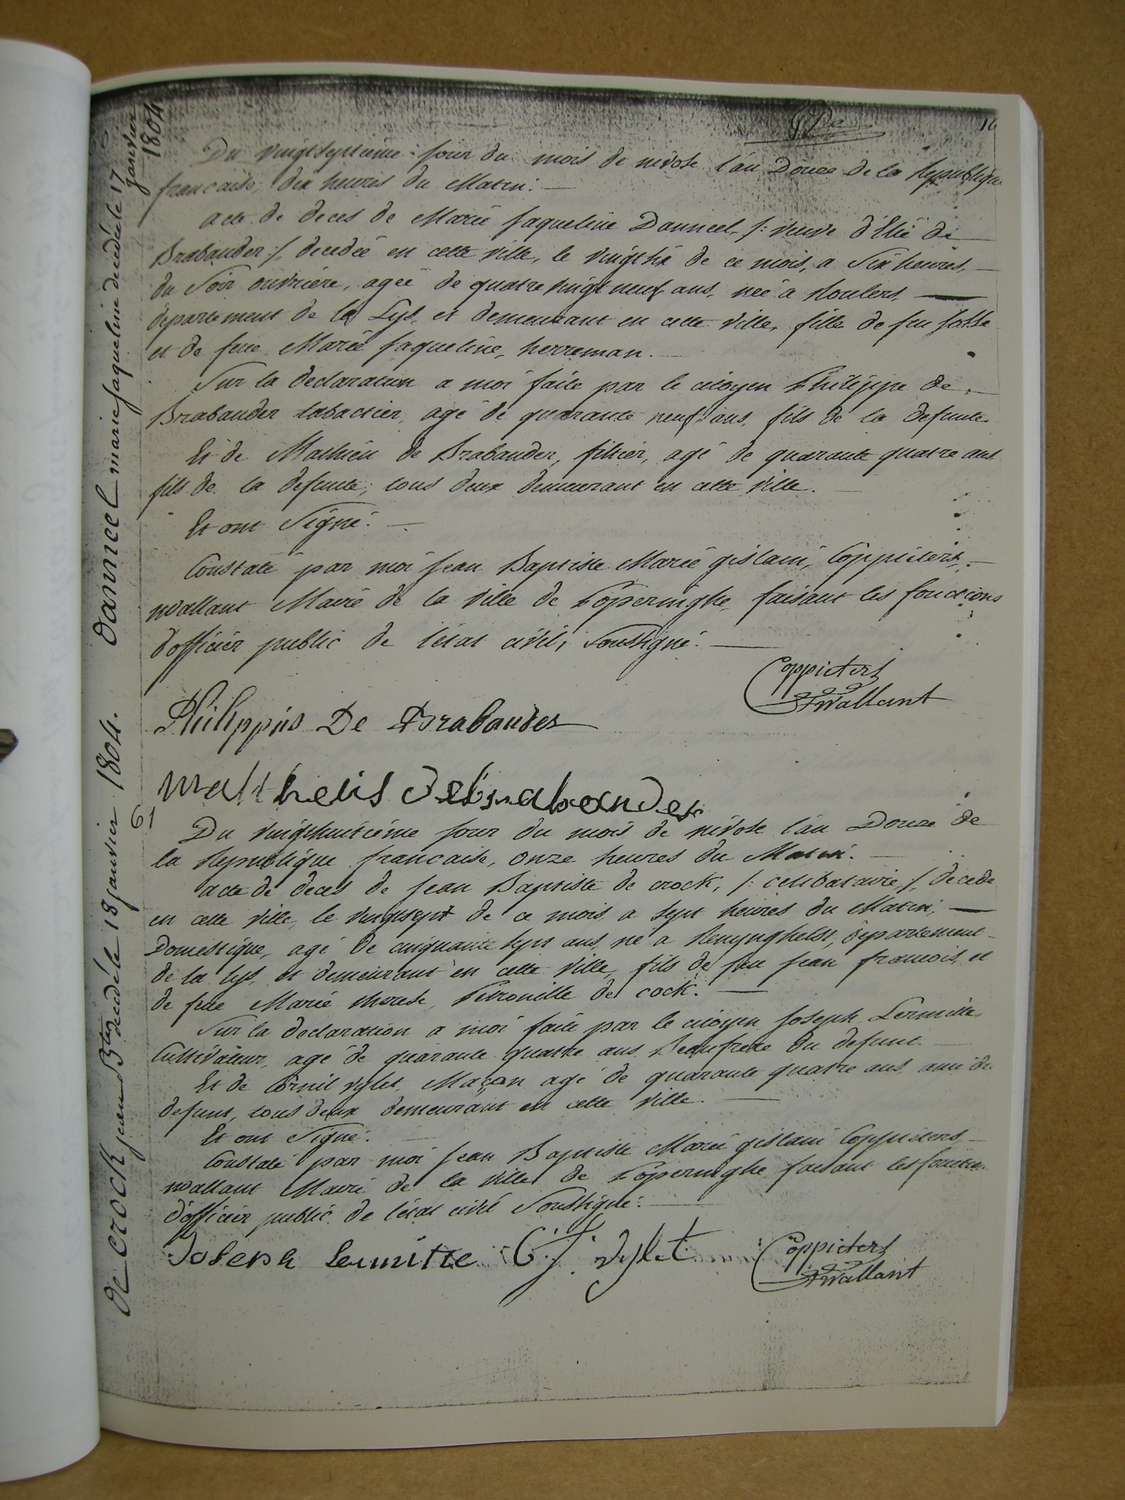 16
Du vingtseptieme jour du mois de nivose l'an Douze de la Republique
francaise, dix heures du Matin.
acte de deces de Marie Jaqueline Danneel /: veuve d'Elie de
Brabander :/ decedée en cette ville, le vingtsix de ce mois, a Six heures
du Soir ouvriere, agée de quatre vingt neuf ans, née à Roulers
departement de la Lys, et demeurant en cette ville, fille de feu Josse
et de feue Marie Jaqueline, herreman.
Sur la declaration a moi faite par le citoyen Philippe de
Brabander tabactier, agé de quarante neuf ans, fils de la defunte
Et de Mathieu de Brabander, filtier, agé de quarante quatre ans
fils de la defunte, tous deux demeurant en cette ville.
Et ont Signé.
Constaté par moi Jean Baptiste Marie gislain, Coppieters,
wallant Maire de la ville de Poperinghe, faisant les fonctions
d'officier public de l'état civil, Soussigné.
Coppieters
Twallant
Philippus De Brabander
Mattheus debrabander
61
Du vingthuitieme jour du mois de nivose l'an Douze de
la Republique francaise, onze heures du Matin.
acte de deces de Jean Baptiste de crock, /: celibataire :/ decedé
en cette ville, le vingtsept de ce mois a sept heures du Matin,
Domestique, agé de cinquante sept ans, né a Renynghelst, departement
de la Lys, et demeurant en cette ville, fils de feu Jean francois, et
de feue Marie therese, Petronille de cock.
Sur la declaration a moi faite par le citoyen Joseph Lermitte
Cultivateur, agé de quarante quatre ans, Beaufrere du defunt
Et de Cornil vylet, Maçon agé de quarante quatre ans ami du
defunt, tous deux demeurant en cette ville.
Et ont Signé.
Constaté par moi Jean Baptiste Marie gislain Coppieters
wallant Maire de la ville de Poperinghe faisant les fonctions
d'officier public de l'état civil Soussigné.
Joseph Lermitte C: J: vylet
Coppieters
Twallant
danneel marie jaqueline decedé le 17 janvier 1804
de crock jean Btes decedé le 18 janvier 1804.